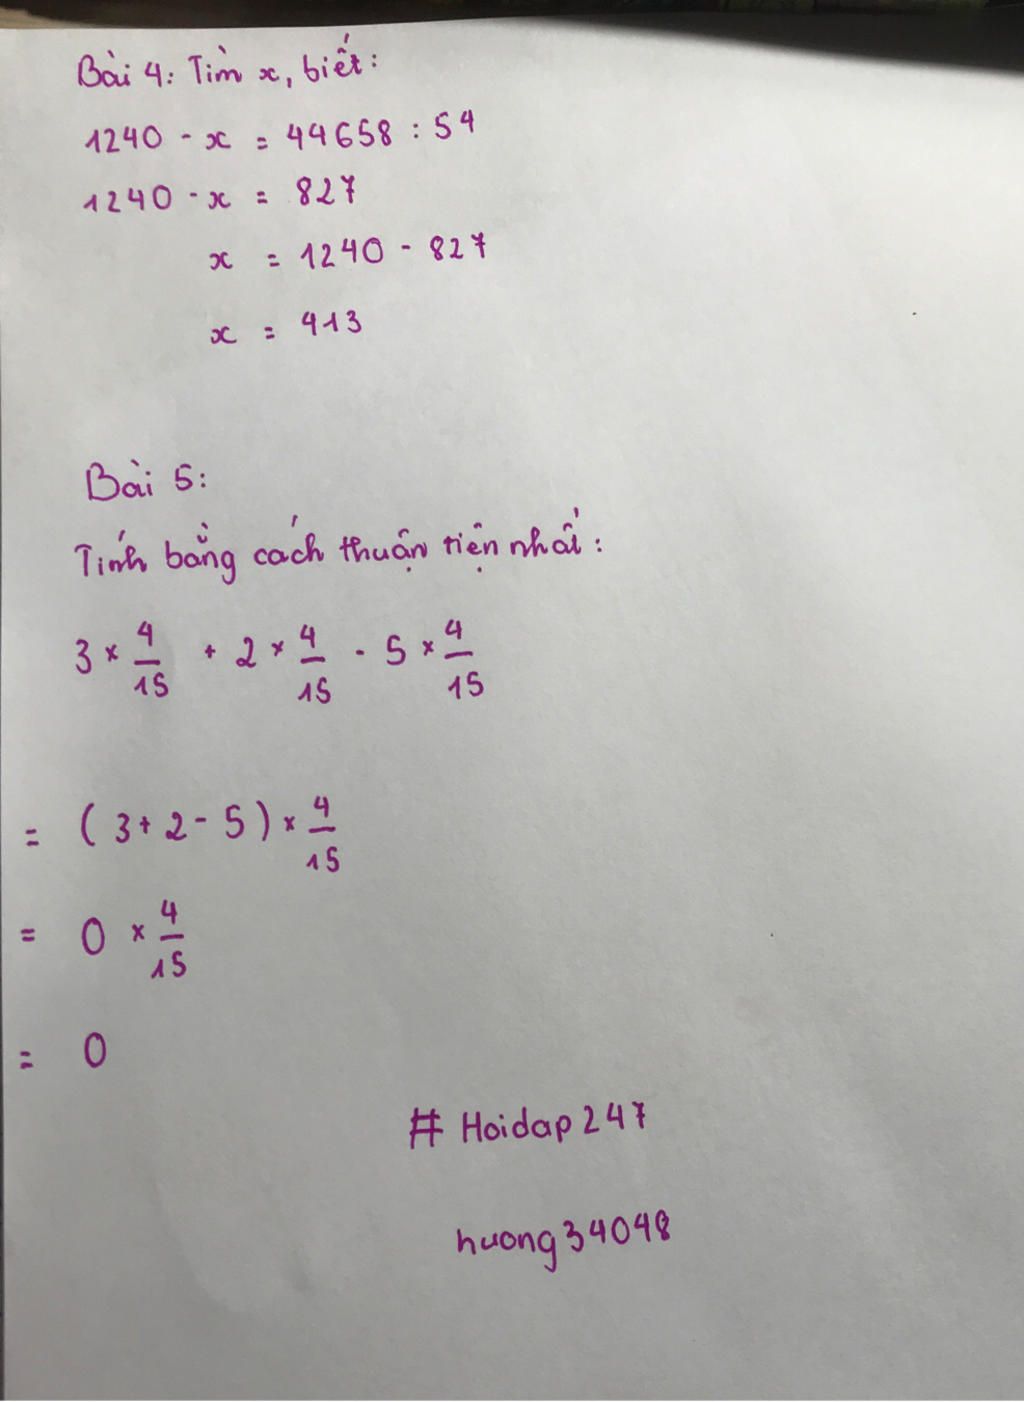 Bài 4: Tìm x, biết:
1240 - x = 44658 : 54
1240 - x = 827
x = 1240 - 827
x = 413
Bài 5:
Tính bằng cách thuận tiện nhất:
3 × 4/15 + 2 × 4/15 - 5 × 4/15
= (3+2-5) × 4/15
= 0 × 4/15
= 0
# Hoidap247
huong34048